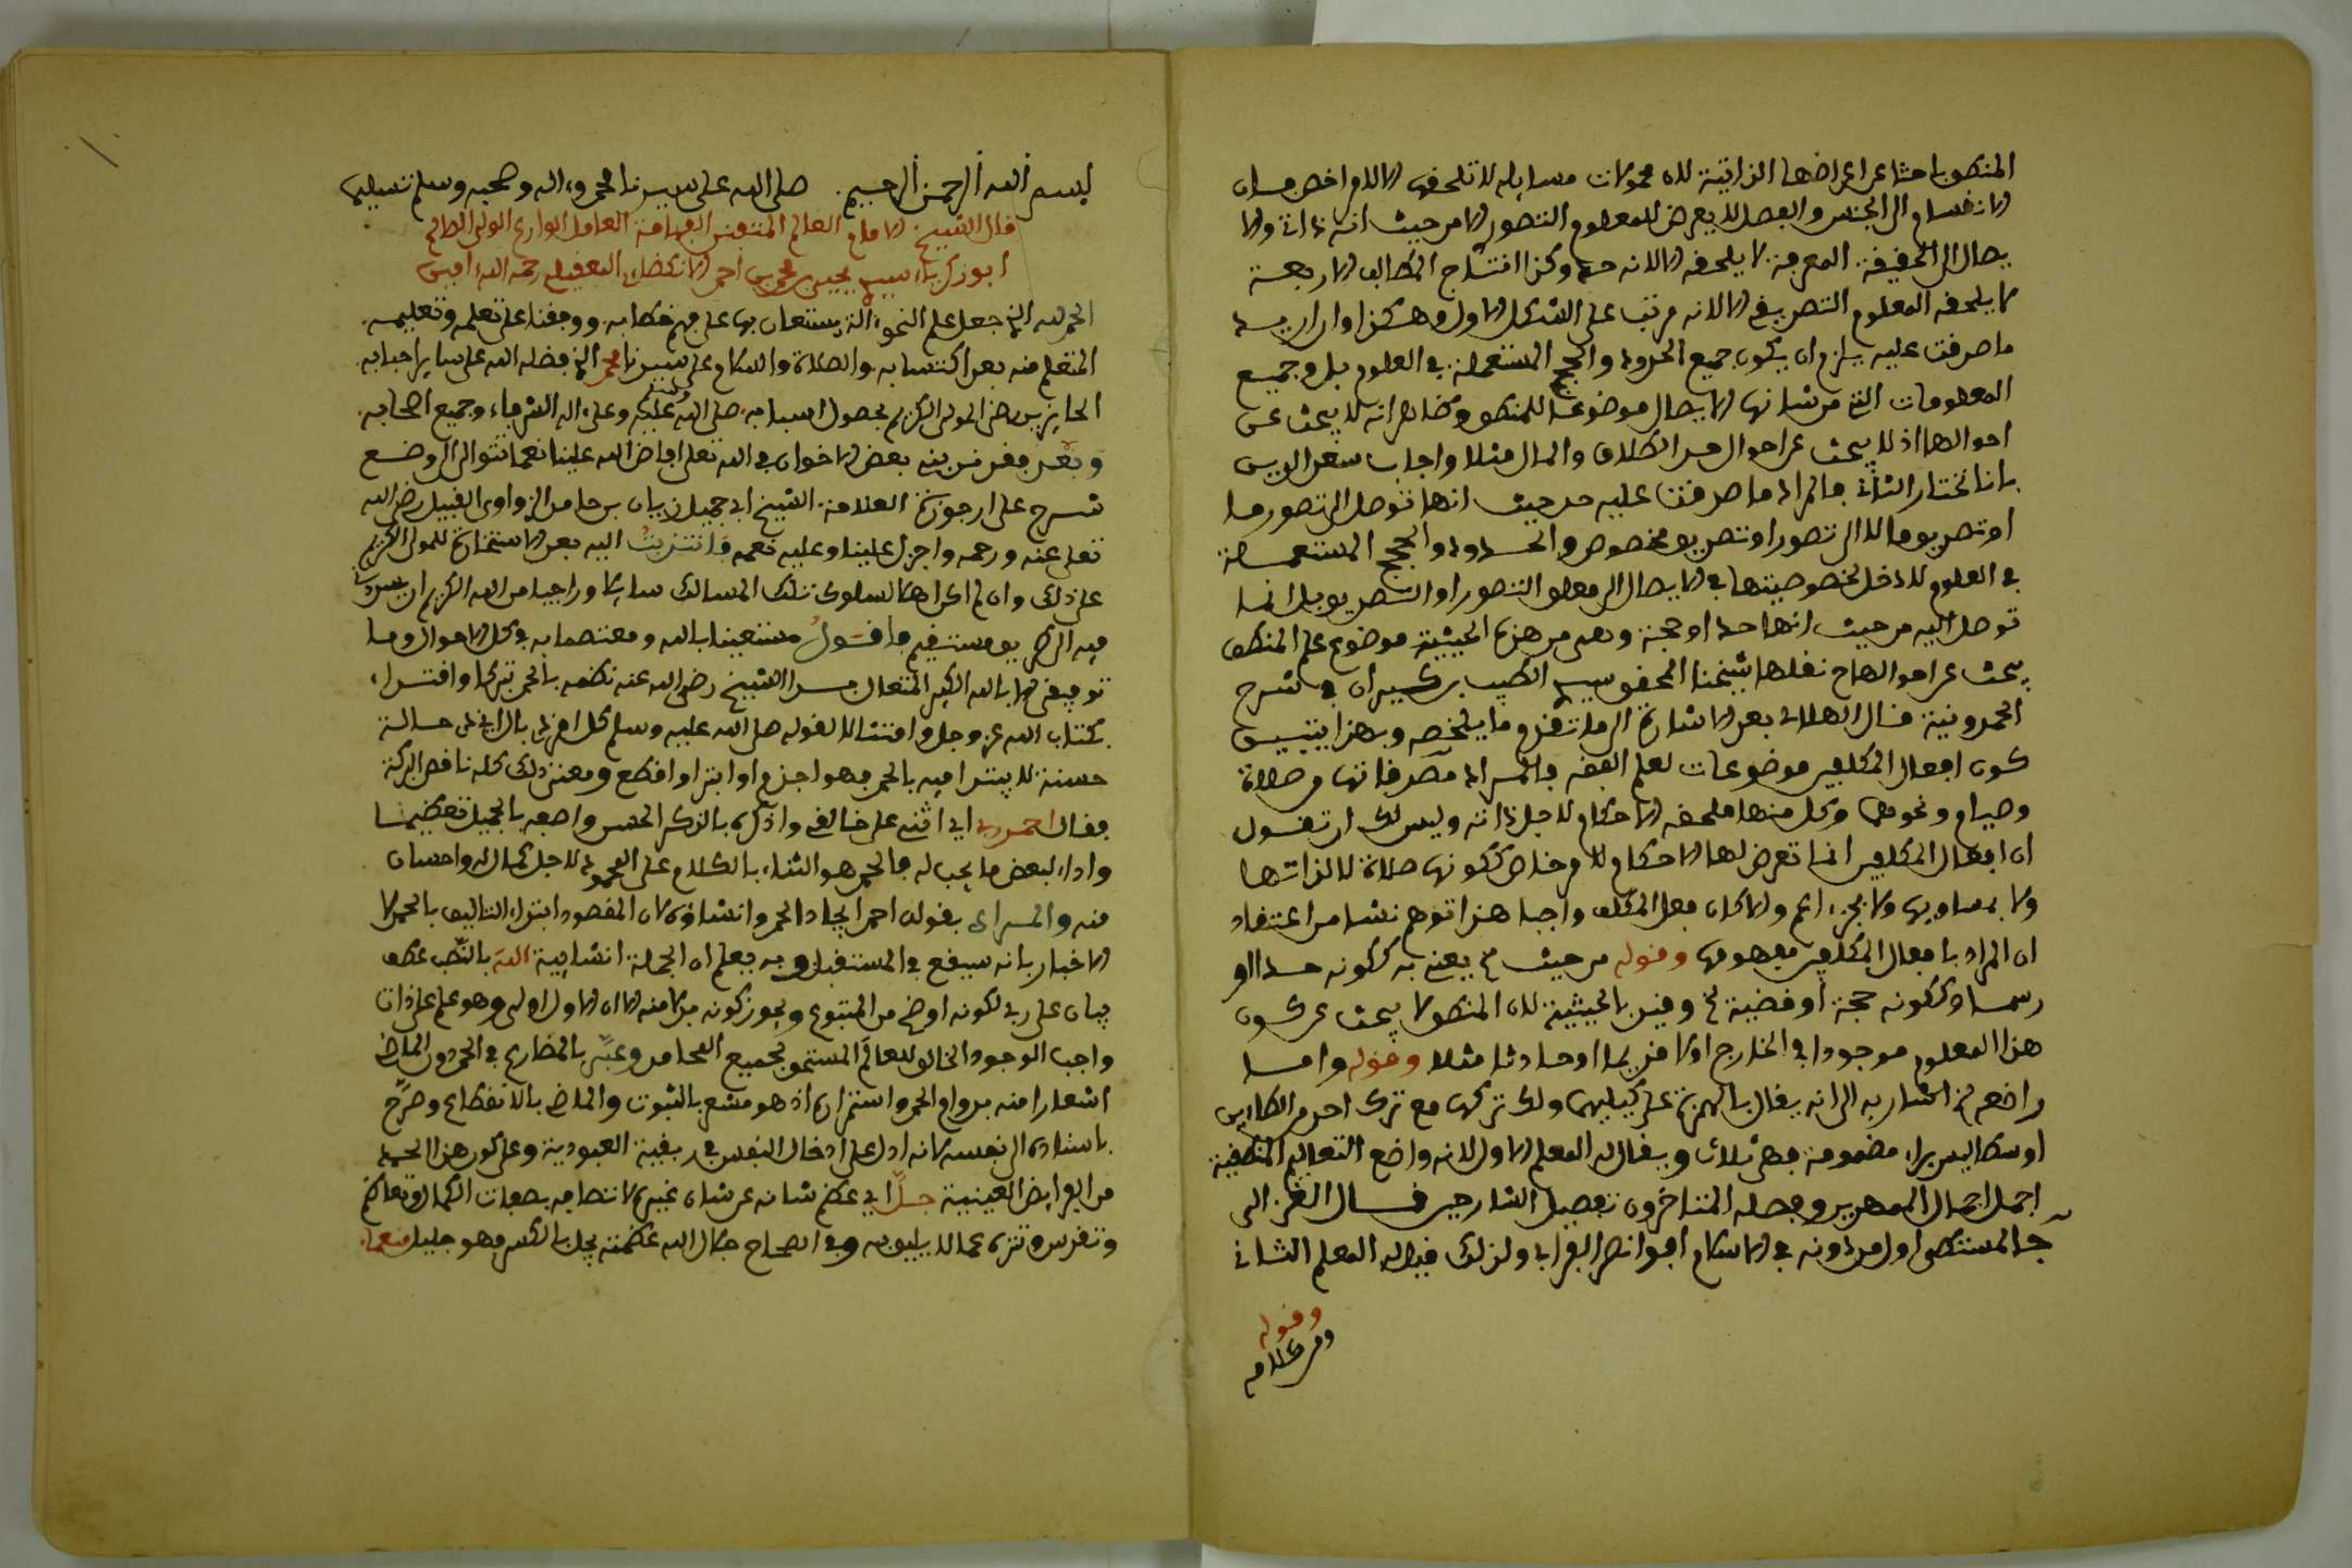 المنطق باحثا عن اعراضها الذاتية لان محمولات مسايله لا تلحقها الا لامر اخص فان
الانقسام الى الجنس والفصل لا يعرض للمعلوم التصور الا من حيث انه ذاتي والا
يصال الى الحقيقة المعرفة لا يلحقه الا لانه حد وكذا انتاج المطالب الاربعة
لا يلحقه المعلوم التصديقي الا لانه مرتب على الشكل الاول وهكذا وان اريد
ما صدقت عليه يلزم ان يكون جميع الحدود والحجج المستعملة في العلوم بل وجميع
المعلومات التي من شانها الايصال موضوعا للمنطق وظاهر انه لا يبحث عن
احوالها اذ لا يبحث عن احوال حد الطلاق والمال مثلا واجاب سعد الدين
بانا نختار الثاني فالمراد ما صدقت عليه من حيث انها توصل الى تصور ما
او تصديق ما لا الى تصور او تصديق مخصوص والحدود والحجج المستعملة
في العلوم لا دخل لخصوصيتها في الايصال الى معلوم التصور او التصديق بل انما
توصل اليه من حيث انها حد او حجة وهي من هذه الحيثية موضوع علم المنطق
يبحث عن احوالها ح نقلها شيخنا المحقق سيدي الطيب بن كيران في شرح
الخمدونية قال الهلالي بعد الاشارة الى ما تقدم وما يلخصه وبهذا يتبين
كون افعال المكلفين موضوعات لعلم الفقه والمراد مصدقاتها من صلاة
وصيام ونحوهما وكل منها ملحقه الاحكام لاجل ذاته وليس لك ان تقول
ان افعال المكلفين انما تعرض لها الاحكام لامر خاص ككونها صلاة لا لذاتها
ولا بمساويها ولا بجزء اعم والا كان فعل المكلف واجبا هذا توهم نشا من اعتقاد
ان المراد بافعال المكلفين مفهومها وقوله من حيث الخ يعني به ككونه حدا او
رسما او ككونه حجة او قضية الخ وقيد بالحيثية لان المنطق لا يبحث عن كون
هذا المعلوم موجودا في الخارج او لا قديما او حادثا مثلا وقوله واما
واضعه الخ اشار به الى انه يقال بالهمزة على كيليهما ولك تركها مع ترك احد الطاءين
اوسطاليس براء مضمومة فهي ثلاث ويقال له المعلم الاول لانه واضع التعاليم المنطقية
اجمل اجمال الممهدين وفصله المتاخرون تفصيل الشارحين قال الغزالي
في المستصفى اول من دونه في الاسلام ابو انصر الفرابي ولذلك قيل له المعلم الثاني
وقوله
ومن كلامه
بسم الله الرحمن الرحيم. صلى الله على سيدنا محمد وءاله وصحبه وسلم تسليما
قال الشيخ الامام العالم المتفنن الفهامة العامل الوارع الولي الصالح
ابو زكرياء سيدي يحيى بن محمد بن احمد الانصاري الفقيه رحمه الله ءامين
الحمد لله الذي جعل علم النحو ءالة يستعان بها على فهم خطابه. ووفقنا على تعلمه وتعليمه.
المتعلم منه بعد اكتسابه. والصلاة والسلام على سيدنا محمد الذي فضله الله على ساير احبابه
الحايزين رضى المولى الكريم بحصول اسبابه. صلى الله عليه وعلى ءاله الشرفاء وجميع اصحابه.
وبعد فقد ندبني بعض الاخوان في الله تعلى افاض الله علينا نعما تتوالى الى وضع
شرح على ارجوزة العلامة الشيخ ابي جميل زيان بن حامد الزواوي القبيل رضي الله
تعلى عنه ورحمه واجزل علينا وعليه نعمه فانتدبت اليه بعد الاستخارة للمولى الكريم
على ذلك وان لم اكن اهلا لسلوك تلك المسالك سايلا وراجيا من الله الكريم ان يسددني
فيه الى طريق مستقيم فاقول مستعينا بالله ومعتصما به في كل الاحوال وما
توفيقي الا بالله الكبير المتعال بدا الشيخ رضي الله عنه نظمه بالحمد تبركا واقتداء
بكتاب الله عز وجل وامتثالا لقوله صلى الله عليه وسلم كل امر ذي بال اي ذي حالة
حسنة لا يبتدا فيه بالحمد فهو اجذم او ابتر او اقطع ومعنى ذلك كله ناقص البركة
فقال احمد ربي اي اثني على خالقي واذكره بالذكر الحسن واصفه بالجميل تعظيما
واداء لبعض ما يجب له فالحمد هو الثناء بالكلام على المحمود لاجل كمال له واحسان
منه والمراد بقوله احمد ايجاد الحمد وانشاؤه لان المقصود ابتداء التاليف بالحمد لا
الاخبار بانه سيقع في المستقبل وبه يعلم ان الجملة انشايية الله بالنصب عطف
بيان على ربي لكونه اوضح من المتبوع ويجوز كونه بدلا منه الا ان الاول اولى وهو علم على ذات
واجب الوجود الخالق للعالم المستحق لجميع المحامد وعبر بالمضارع في الحمد دون الماضي
اشعارا منه بدوام الحمد واستمراره اذ هو مشعر بالثبوت والماضي بالانقطاع وصرح
باسناده الى نفسه لانه ادل على ادخال النفس في ربقة العبودية وعلى كون هذا الحمد
من الفرايض العينية جل اي عظم شانه عن شان غيره لاتصافه بصفات الكمال وتعاظم
وتقدس وتنزه عما لا يليق به وفي الصحاح جلال الله عظمته يجل بالكسر فهو جليل منعما.